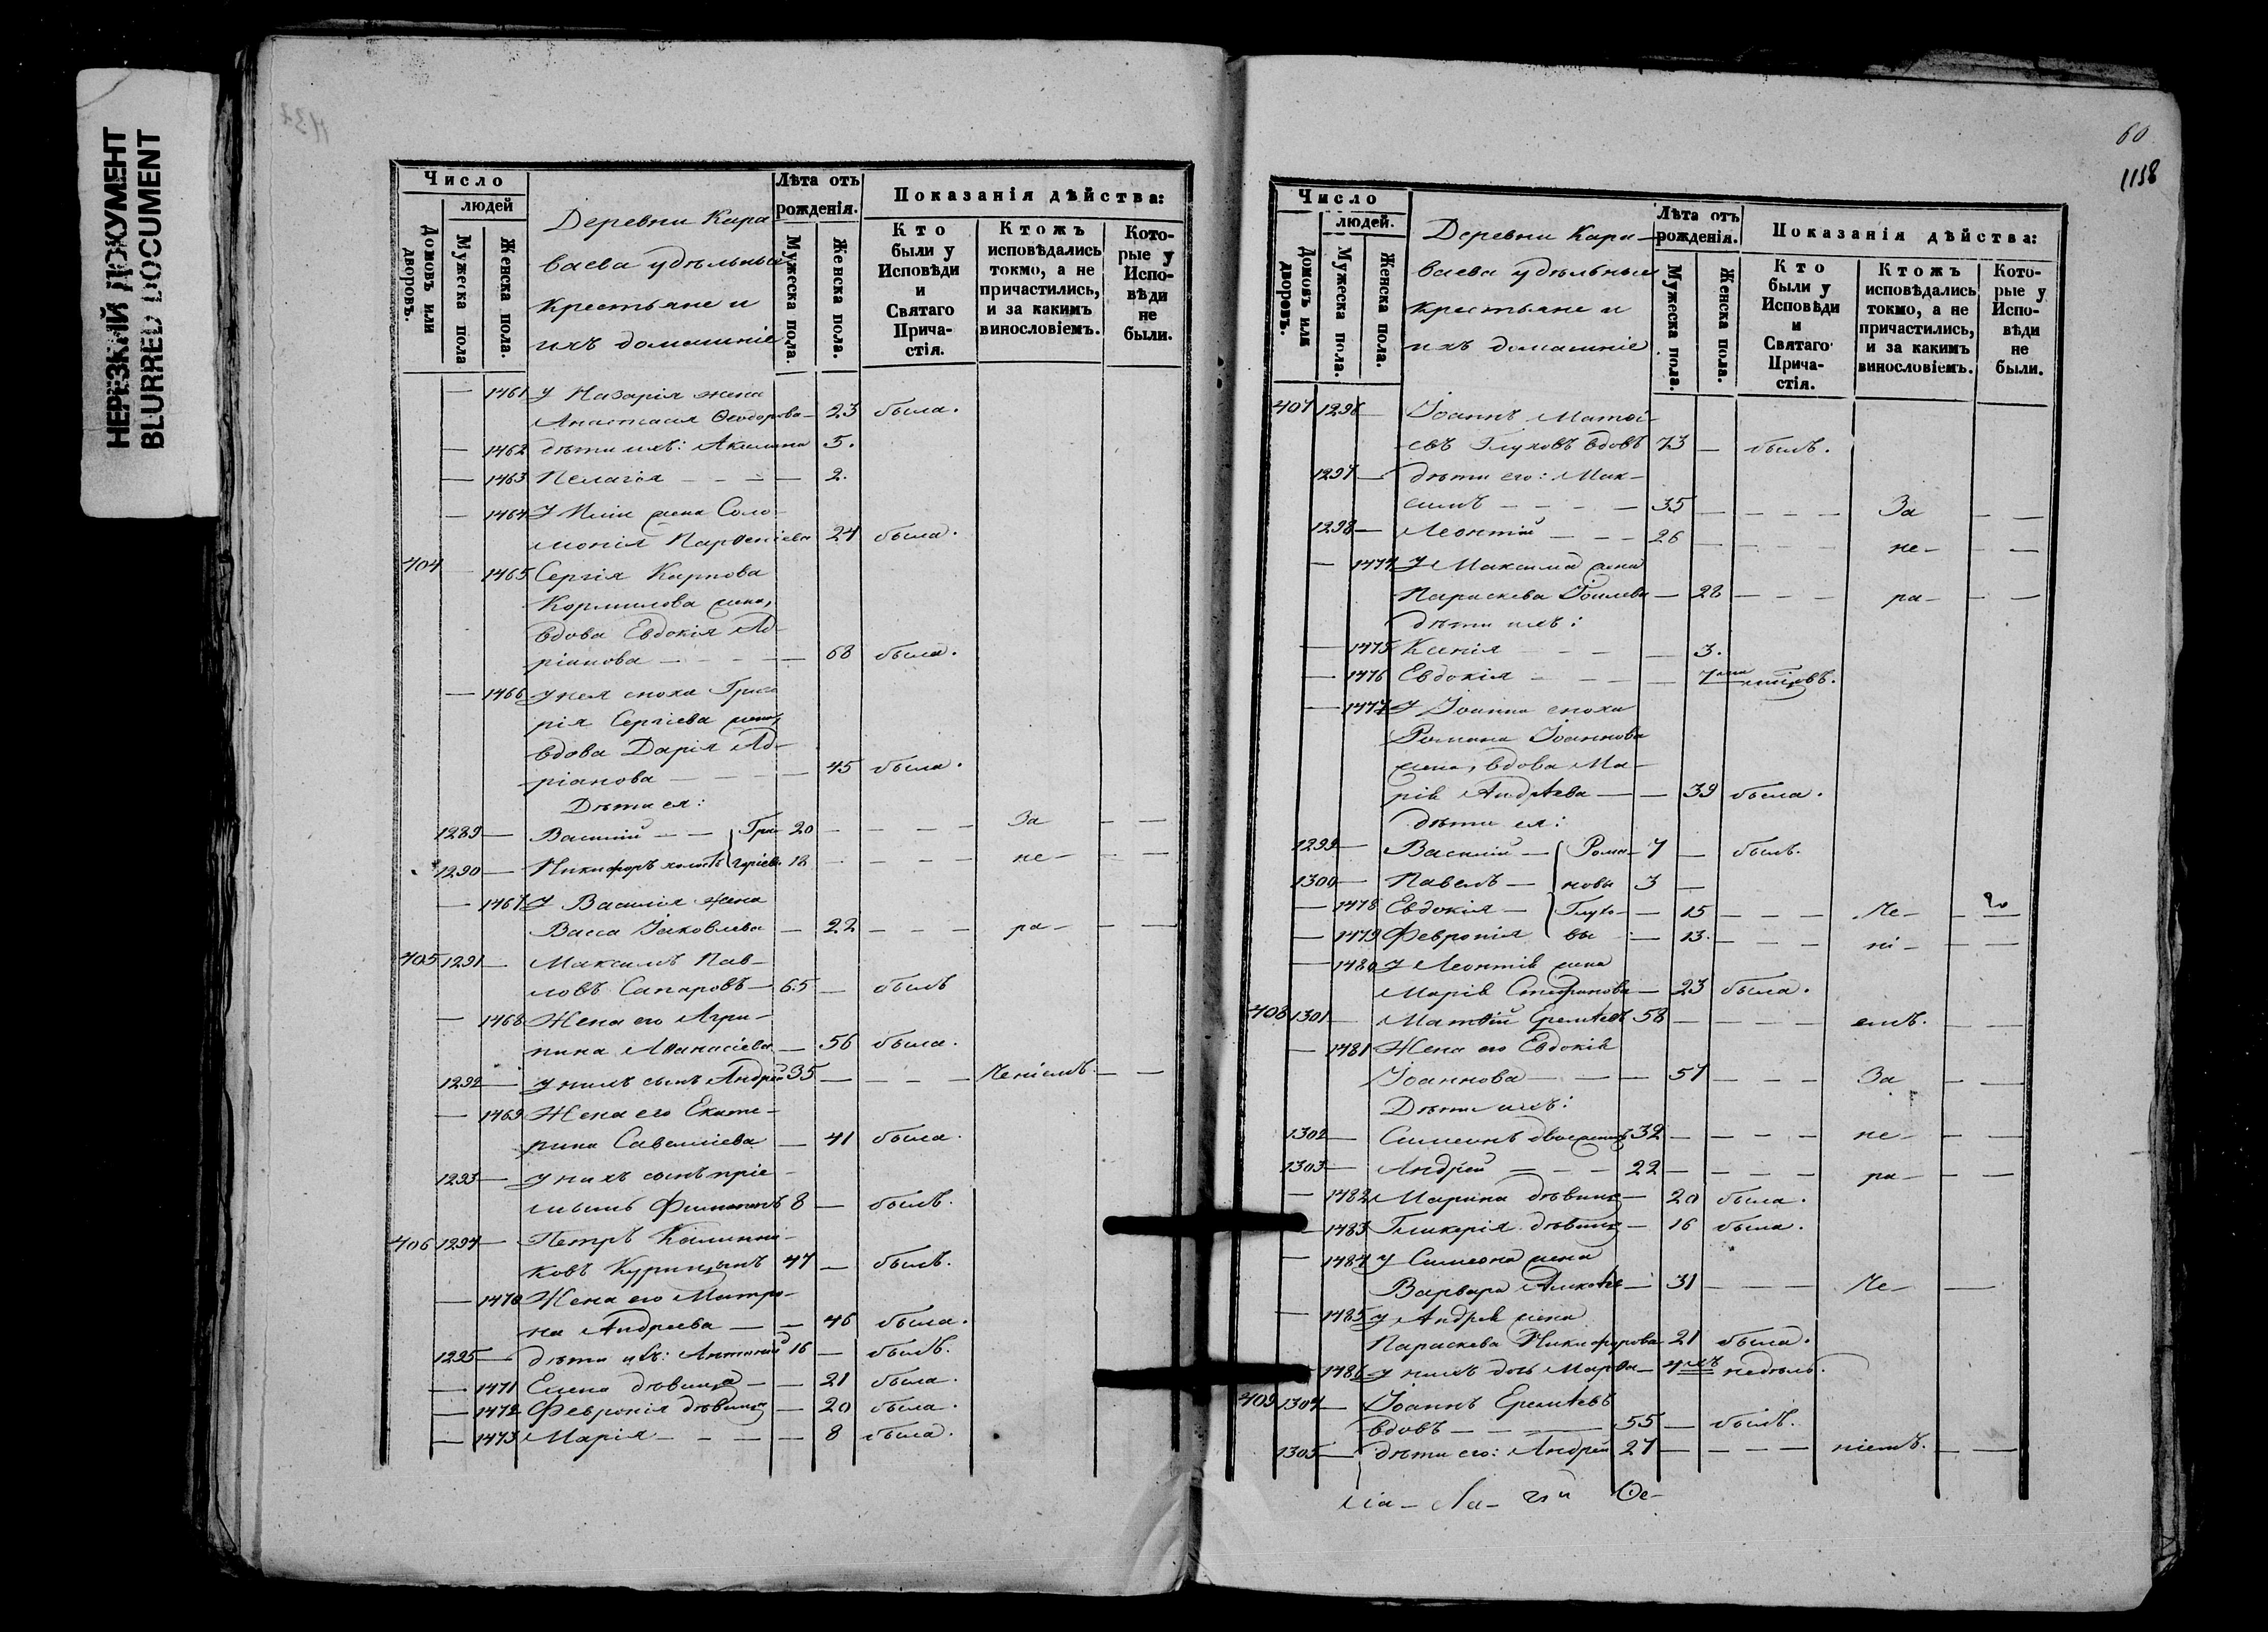 НЕРЕЗКИЙ ДОКУМЕНТ
BLURRED DOCUMENT
Число
людей
Домовъ или дворовъ.
Мужеска пола
Женска пола.
Деревни Кара-
ваева удѣльные
крестьяне и
ихъ домашніе
Лѣта отъ рожденія.
Мужеска пола.
Женска пола.
Показанія дѣйства:
Кто были у Исповѣди и Святаго Причастія.
Ктожъ исповѣдались токмо, а не причастились, и за какимъ винословіемъ.
Которые у Исповѣди не были.
— 1461 У Назарія жена
Анастасія Ѳеодорова — 23 была.
— 1462 дѣти ихъ: Акилина 5.
— 1463 Пелагія — — — — 2.
— 1464 У Иліи жена Соло-
монія Парѳеніева 24 была.
404 — 1465 Сергія Карпова
Кормилова жена,
вдова Евдокія Ад-
ріанова — — — — 68 была.
— 1466 у нея сноха Григо
рія Сергіева жена,
вдова Дарія Ад-
ріанова — — — — 45 была.
Дѣти ея:
1289 — Василій — — Гри- 20 — — — — За — —
1290 — Никифоръ холостъ горіевы 18 — — — — не — — —
— 1467 У Василія жена
Васса Іаковлева — 22 — — — ра — — —
405 1291 — Максимъ Пав-
ловъ Сапаровъ — 65 — былъ
— 1468 Жена его Агри-
пина Аѳанасіева — 56 была.
1292 — у нихъ сынъ Андрей 35 — — — — Ченіемъ. — —
— 1469 Жена его Екате-
рина Савеліева — 41 была.
1293 — у нихъ сынъ пріе-
мышъ 8 — былъ.
406 1294 — Петръ Калинни-
ковъ Курицынъ 47 — былъ.
— 1470 Жена его Матро-
на Андреева — — 46 была.
1295 — дѣти ихъ: Антоній 16 — былъ.
— 1471 Елена дѣвица — — 21 была.
— 1472 Февронія дѣвица — 20 была.
— 1473 Марія — — — — 8 была.
60
1138
Число
людей.
Домовъ или дворовъ.
Мужеска пола.
Женска пола.
Деревни Кара-
ваева удѣльные
крестьяне и
ихъ домашніе
Лѣта отъ рожденія.
Мужеска пола.
Женска пола.
Показанія дѣйства:
Кто были у Исповѣди и Святаго Причастія.
Ктожъ исповѣдались токмо, а не причастились, и за какимъ винословіемъ.
Которые у Исповѣди не были.
407 1296 — Іоаннъ Матѳі-
евъ Глуховъ вдовъ 73 — былъ.
1297 — дѣти его: Мак-
симъ — — — — 35 — — — — За — —
1298 — Леонтій — — — 26 — — — — не — — —
— 1474 У Максима жена
Параскева Іоилева — 28 — — — ра — — —
дѣти ихъ:
— 1475 Ксенія — — — — 3.
— 1476 Евдокія — — — — 7ми
— 1477 У Іоанна сноха
Романа Іоаннова
жена, вдова Ма-
рія Андрѣева — — 39 была.
дѣти ея:
1299 — Василій — Рома- 7 — былъ.
1300 — Павелъ — новы 3 —
— 1478 Евдокія — Глухо- — 15 — — — Че — — —
— 1479 Февронія вы — 13. — — — ні — — —
— 1480 у Леонтія жена
Марія Стефанова — 23 была.
408 1301 — Матѳій Еремѣевъ 58 — — — — емъ. — —
— 1481 Жена его Евдокія
Іоаннова — — — 57 — — — За — —
Дѣти ихъ:
1302 — Симеонъ двоеженецъ 32 — — — — не — — —
1303 — Андрей — — — 22 — — — — ра — — —
— 1482 Марина дѣвица — 20 была.
— 1483 Гликерія дѣвица — 16 была.
— 1484 у Симеона жена
Варвара — 31 — — — Че — —
— 1485 у Андрея жена
Параскева Никифорова 21 была.
— 1486 у нихъ дочь Марѳа — 4хъ недѣль.
409 1304 — Іоаннъ Еремѣевъ
вдовъ — — — — 55 — былъ.
1305 — дѣти его: Андрей 27 — — — — ніемъ. — —